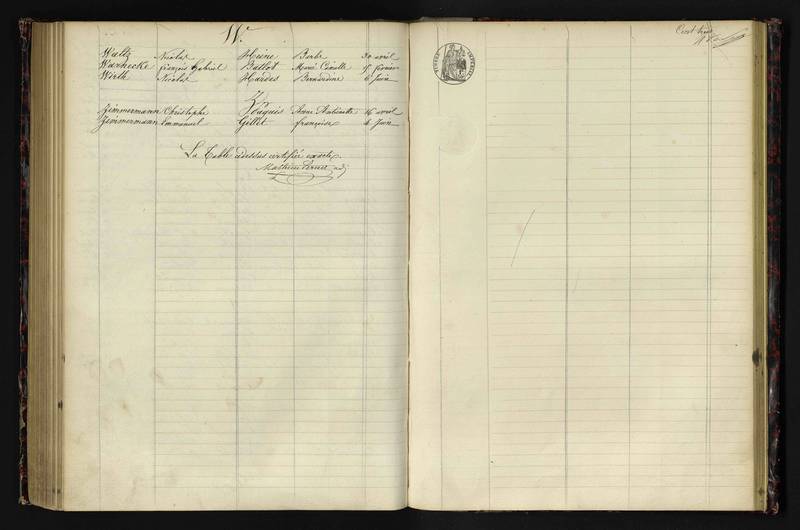 W.
Waltz Nicolas Heine Barbe 30 avril
Warnecke françois Gabriel Ballot Marie Camille 15 février
Wirth Nicolas Hardes Bernardine 6 Juin
Z.
Zimmermann Christophe Paquis Anne Antoinette 16 avril
Zimmermann Emmanuel Gillet françoise 4 Juin
La Table cidessus certifiée exacte
Cent trois